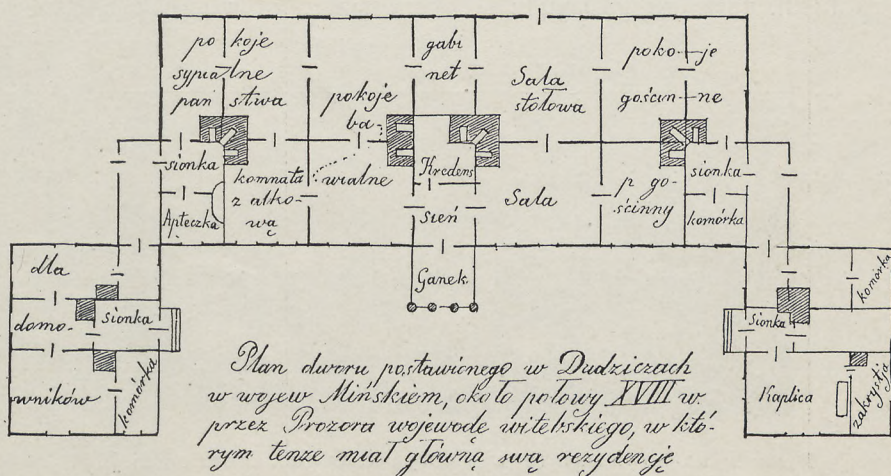 po koje
sypialne
pań stwa
pokoje
ba-
wialne
gabi
net
Sala
stołowa
poko-je
gościn-ne
sionka
Apteczka
komnata
z alko-
wą
Kredens
sień
Ganek
Sala
p go-
ścinny
sionka
komórka
dla
domo-
wników
sionka
komórka
komórka
sionka
Kaplica
zakrystja
Plan dworu postawionego w Dudziczach
w wojew Mińskiem, około połowy XVIII w
przez Prozora wojewodę witebskiego, w któ-
rym tenze miał główną swą rezydencję